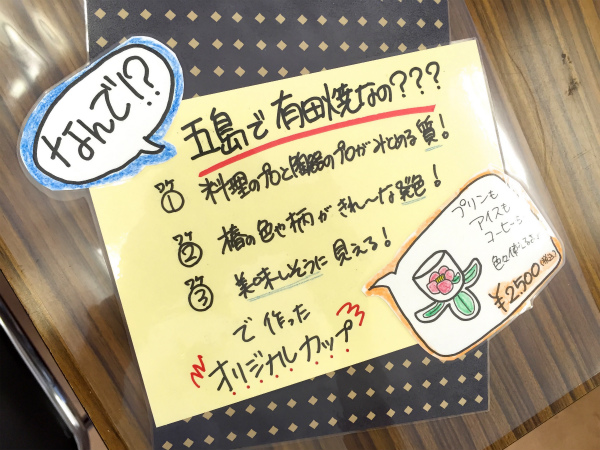 なんで!?
五島で有田焼なの???
ワケ① 料理のプロと陶器のプロがみとめる質!
ワケ② 椿の色や柄がきれ〜な発色!
ワケ③ 美味しそうに見える!
で作った
オリジナルカップ
プリンも
アイスも
コーヒーも
色々使えるよ♪
¥2500(税込)